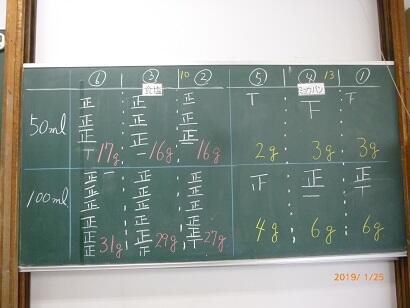 ⑥ ③ 10 ② ⑤ ④ 13 ①
食塩 ミョウバン
50ml
正 正 正 T 下 下
正 正 正
正 正 正
T 17g 一 16g 16g 2g 3g 3g
100ml
正 正 正 正 正
正 正 正 一
正 正 正
正 正 正
正 正 正
31g 29g T 27g 4g 6g 6g
2019/ 1/25